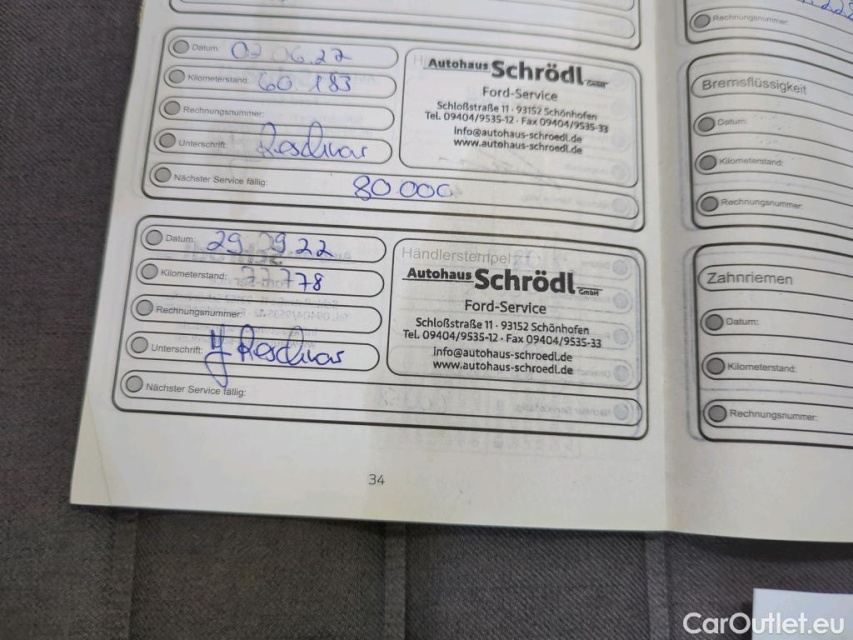 Datum: 02 06.22
Kilometerstand: 60 183
Rechnungsnummer:
Unterschrift:
Nächster Service fällig: 80 000
Autohaus Schrödl GmbH
Ford-Service
Schloßstraße 11 · 93152 Schönhofen
Tel. 09404/9535-12 · Fax 09404/9535-33
Info@autohaus-schroedl.de
www.autohaus-schroedl.de
Datum: 29 09.22
Kilometerstand: 77 778
Rechnungsnummer:
Unterschrift:
Nächster Service fällig:
Händlerstempel
Autohaus Schrödl GmbH
Ford-Service
Schloßstraße 11 · 93152 Schönhofen
Tel. 09404/9535-12 · Fax 09404/9535-33
Info@autohaus-schroedl.de
www.autohaus-schroedl.de
34
Rechnungsnummer:
Bremsflüssigkeit
Datum:
Kilometerstand:
Rechnungsnummer:
Zahnriemen
Datum:
Kilometerstand:
Rechnungsnummer:
CarOutlet.eu